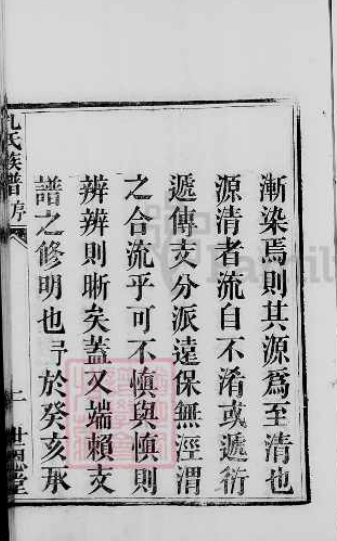 漸染焉則其源爲至清也
源清者流自不淆或遞衍
遞傳支分派遠保無涇渭
之合流乎可不慎與慎則
辨辨則晰矣蓋又端賴支
譜之修明也予於癸亥承
氏族譜 序
二 世恩堂